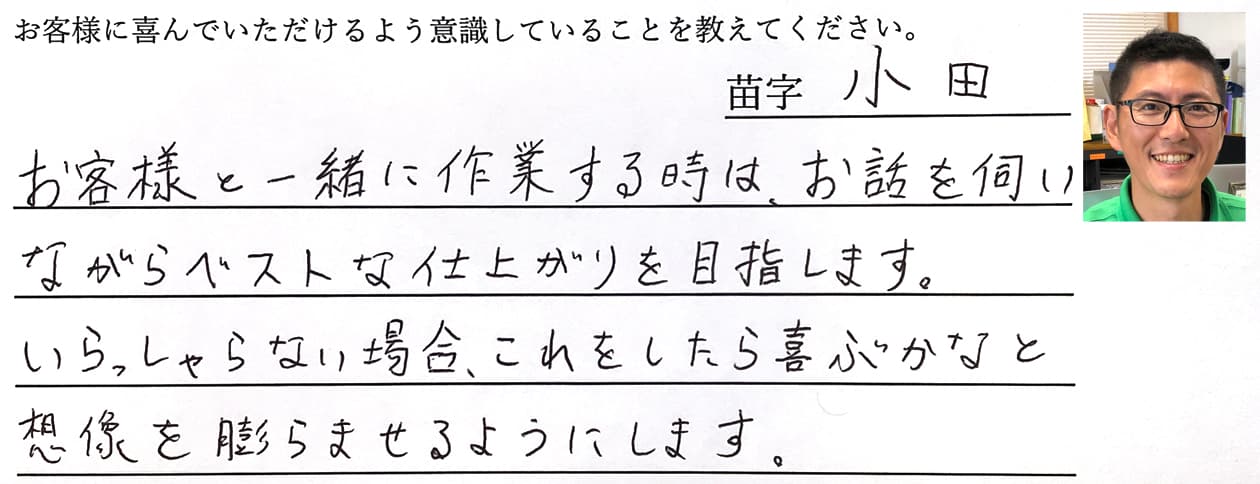 お客様に喜んでいただけるよう意識していることを教えてください。
苗字 小田
お客様と一緒に作業する時は、お話を伺い
ながらベストな仕上がりを目指します。
いらっしゃらない場合、これをしたら喜ぶかなと
想像を膨らませるようにします。